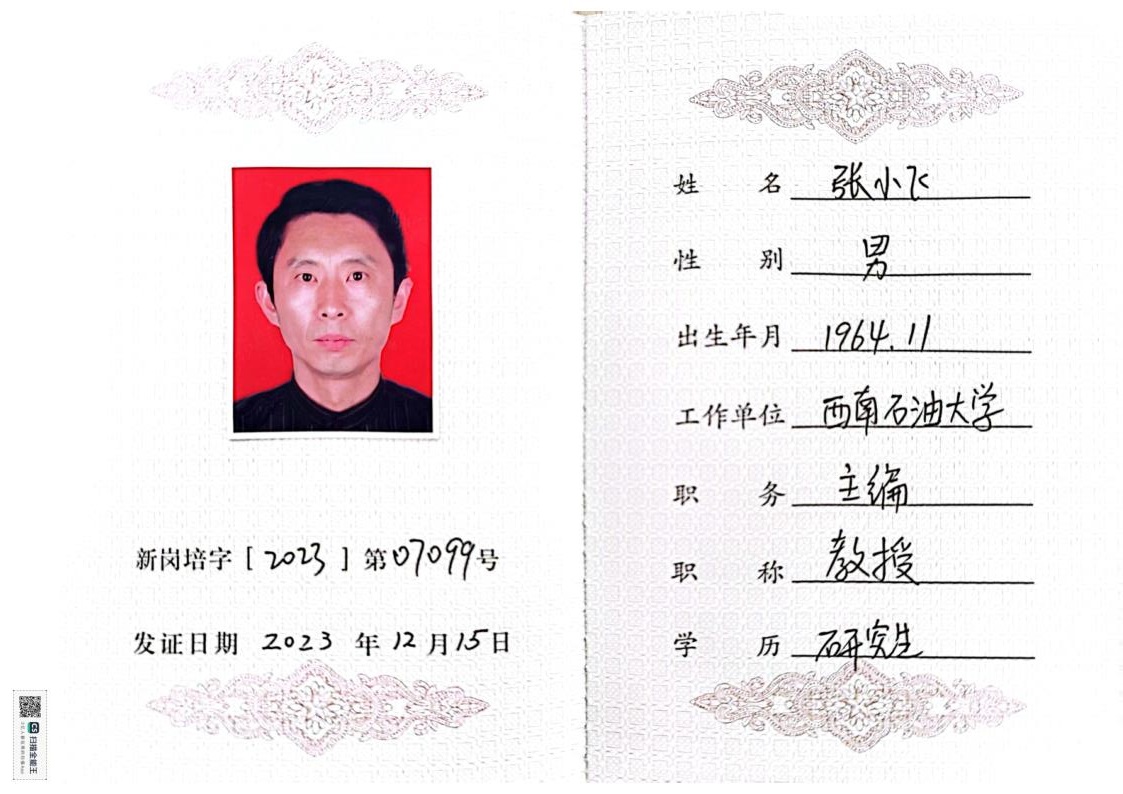 新岗培字［2023］第07099号
发证日期 2023 年 12 月 15 日
姓名 张小飞
性别 男
出生年月 1964.11
工作单位 西南石油大学
职务 主编
职称 教授
学历 研究生
CS 扫描全能王